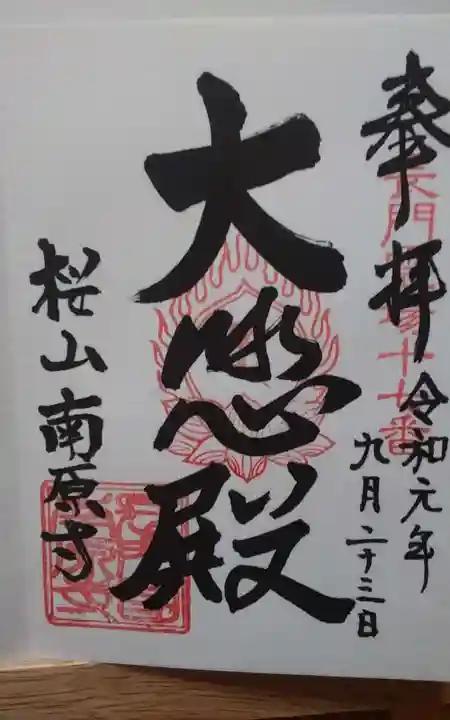 奉拝
長門霊場十七番
令和元年
九月二十三日
大悲殿
桜山南原寺